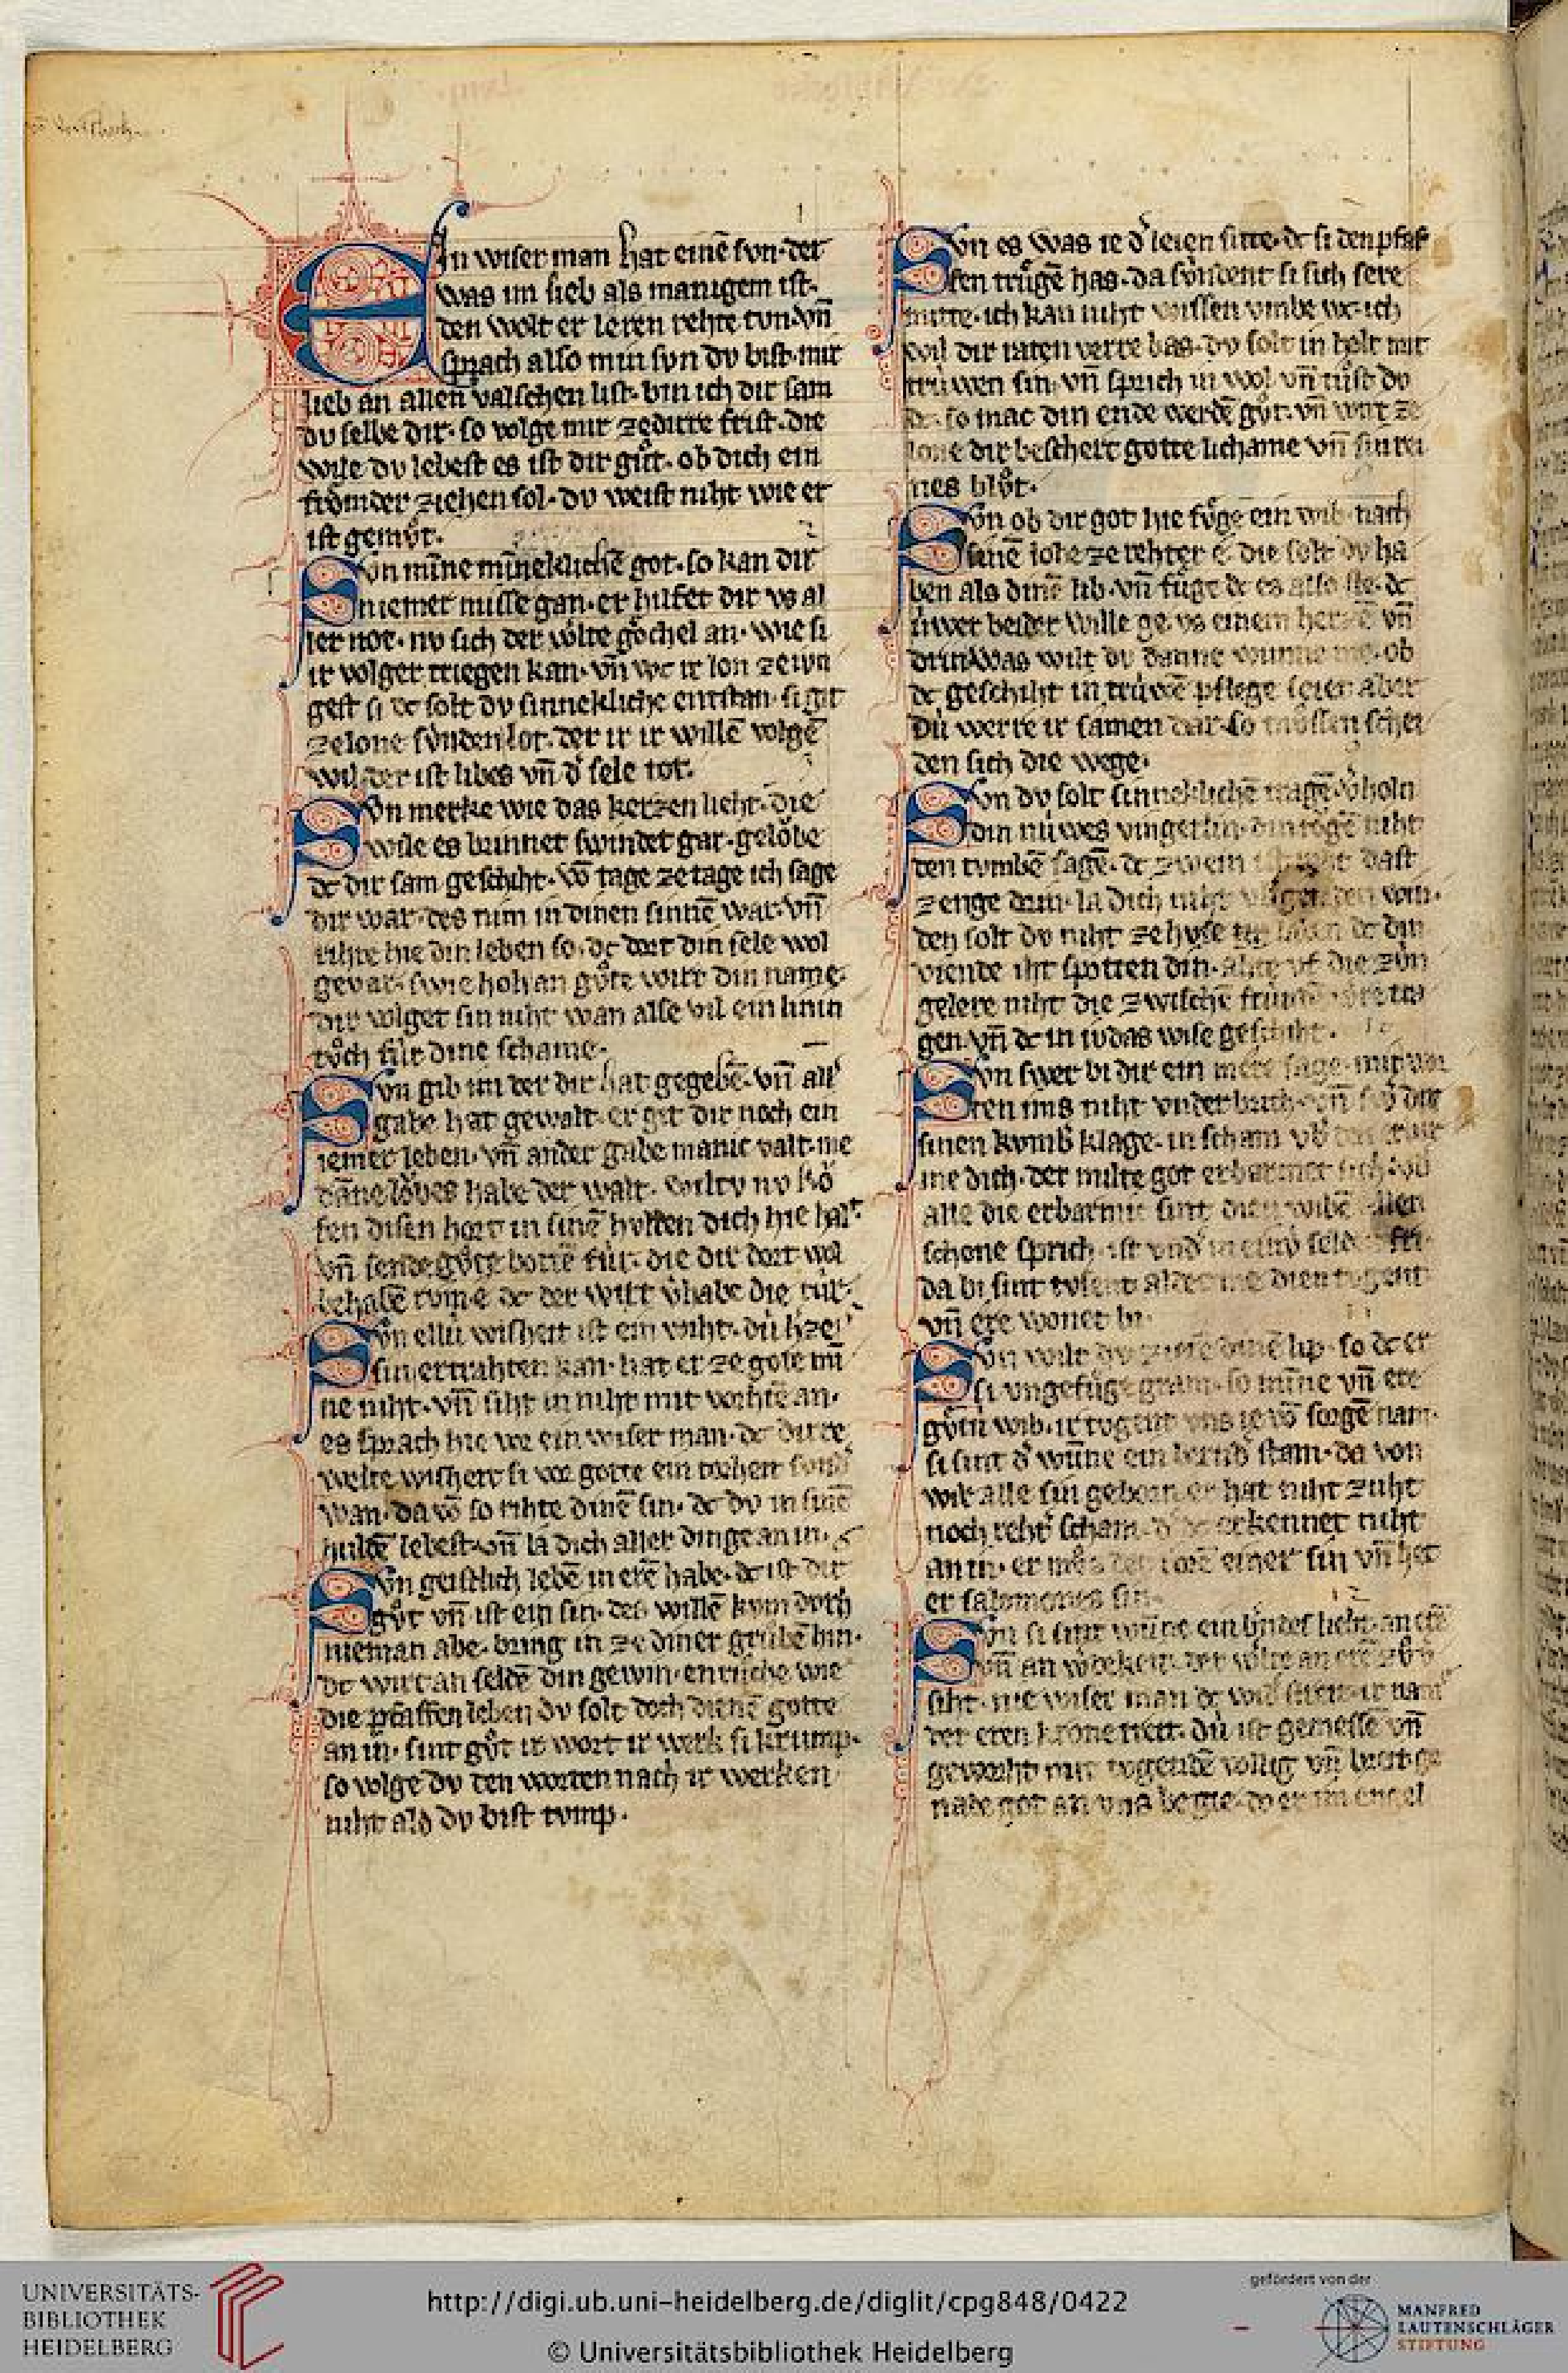 Ein wiser man hat einē svn·der
was im lieb als manigem ist·
den wolt er leren rehte tvn·vn̄
sprach also min svn dv bist·mir
lieb an allen valschen list·bin ich dir sam
dv selbe dir·so volge mir ze dirre frist·die
wile dv lebest es ist dir gůt·ob dich ein
frômder ziehen sol·dv weist niht wie er
ist gemv̊t·
Svn minne minneklichē got·so kan dir
niemer misse gan·er hilfet dir vs al
ler not·nv sich der wëlte gôchel an·wie si
ir volger triegen kan·vn̄ wc ir lon ze ivn
gest si dc solt dv sinnekliche entstan·si git
ze lone svnden lot·der ir ir willē volgē
wil·der ist libes vn̄ d' sele tot·
Svn merke wie das kerzen lieht·die
wile es brinnet swindet gar·gelôbe
dc dir sam geschiht·vō tage ze tage ich sage
dir war·des nim in dinen sinnē war·vn̄
rihte hie din leben so·dc dort din sele wol
gevar·swie hoh an gůte wirt din name·
dir volget sin niht wan alse vil ein linin
tůch fúr dine schame·
Svn gib im der dir hat gegebē·vn̄ all'
gabe hat gewalt·er git dir noch ein
iemer leben·vn̄ ander gabe manic valt·me
dāne lôbes habe der walt·wiltv nv kô
fen disen hort in sinē hvlden dich hie halt
vn̄ sende gůte bottē fúr·die dir dort wol
behabē rvm·e dc der wirt v'habe die túr·
Svn ellú wisheit ist ein wiht·dú h'ze
sin ertrahten kan·hat er ze gote mī
ne niht·vn̄ siht in niht mit vorhtē an·
es sprach hie vor ein wiser man·dc dirre
welte wisheit si vor gotte ein torheit sund'
wan·da vō so rihte dinē sin·dc dv in sinē
huldē lebest·vn̄ la dich aller dinge an in·
Svn geistlich lebē in erē habe·dc ist dir
gůt vn̄ ist ein sin·des willē kvm doch
nieman abe·bring in ze diner grůbē hin·
dc wirt an seldē din gewin·enrůche wie
die pfaffen leben dv solt doch dienē gotte
an in·sint gůt ir wort ir werk si krump·
so volge dv den worten nach ir werken
niht ald dv bist tvmp·
Svn es was ie d' leien sitte·dc si den pfaf
fen trůgē has·da svndent si sich sere
mitte·ich kan niht wissen vmbe wc·ich
wil dir raten verre bas·dv solt in holt mit
trúwen sin·vn̄ sprich in wol vn̄ tůst dv
dc·so mac din ende werdē gůt·vn̄ wirt ze
lone dir beschert gotte lichame vn̄ sin rei
nes blůt·
Svn ob dir got hie fůge ein wib·nach
sinē lobe ze rehter e·die solt dv ha
ben als dinē lib·vn̄ fůge dc es also ste·dc
úwer beider wille ge·vs einem herzē vn̄
drin·was wilt dv danne wunne me·ob
dc geschiht in trúwē pflege seier aber
Dú werre ir samen dar·so můssen schei
den sich die wege·
Svn dv solt sinneklichē tragē v'holn
din núwes vingerlin·din tôgē niht
den tvmbē sagē·dc zwein dast
ze enge drin·la dich niht den win·
den solt dv niht ze hvse dc din
viende iht spotten din·ahte vf die zvn
gelere niht die zwischē
gen·vn̄ dc in ivdas wise geschiht·
Svn swer bi dir ein mere sage·mit wor
ten ims niht vnderbrich·vn̄ swer dir
sinen kvmb' klage·in scham
me dich·der milte got erbarmet sich vb'
alle die erbarmic sint dien wibē allen
schone sprich·ist vnd'
da bi sint tvsent alder me dien tvgent
vn̄ ere wonet bi·
Svn wilt dv zieren dinē lip·so dc er
si vngefůge gram·so minne vn̄ ere
gůtú wib·ir tvgent vns ie vō sorgē nam·
si sint d' wūne ein bernd' stam·da von
wir alle sin geborn·er hat niht zuht
noch reht' scham·d' dc erkennet niht
an in·er můs der torē einer sin vn̄ het
er salomones sin·
Svn si sint wūne ein bernd' lieht·an erē
vn̄ an werdekeit·der wëlte an
siht·nie wiser man dc ir nam
der eren krone treit·dú ist gemessē vn̄
geworht mit tvgendē vollig vn̄ breit·ge
nade got an vns begie·do er im engel
UNIVERSITÄTS-
BIBLIOTHEK
HEIDELBERG
http://digi.ub.uni-heidelberg.de/diglit/cpg848/0422
© Universitätsbibliothek Heidelberg
gefördert von der
MANFRED
LAUTENSCHLÄGER
STIFTUNG